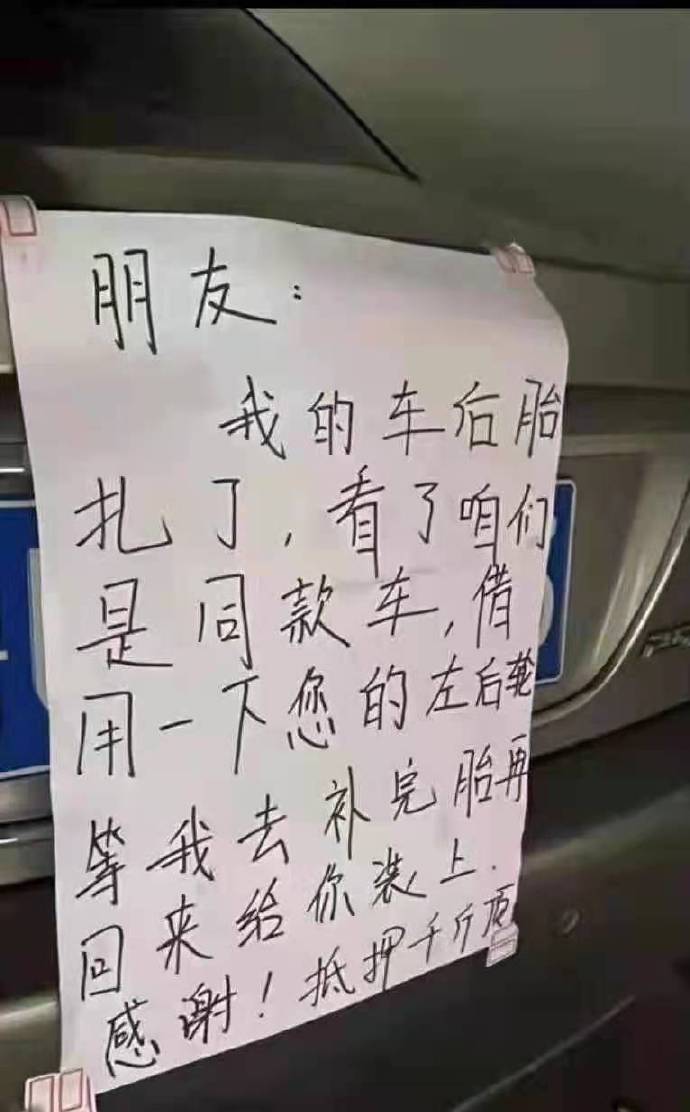 朋友：
我的车后胎
扎了，看了咱们
是同款车，借
用一下您的左后轮
等我去补完胎再
回来给你装上.
感谢！抵押千斤顶